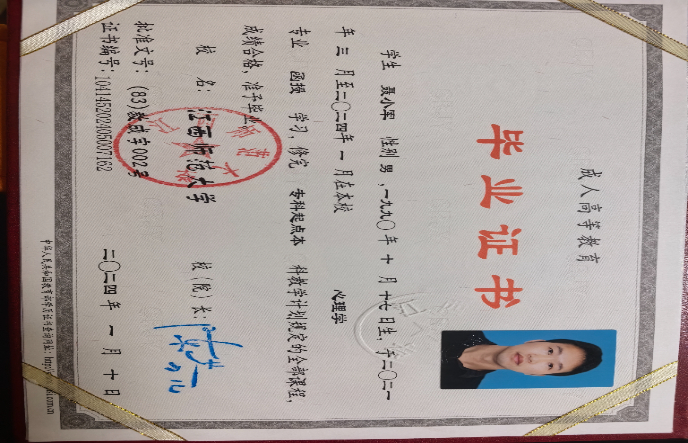 成人高等教育
毕业证书
学生 聂小军 性别 男,一九九〇年 十 月 十七 日生,于二〇二一
年 三 月至二〇二四年 一 月在本校 心理学
专业 函授 学习,修完 专科起点本 科教学计划规定的全部课程,
成绩合格,准予毕业。
校 名: 江西师范大学 校(院)长:
批准文号: (83)教成字002号
证书编号: 104145202405007162 二〇二四年 一 月 十 日
中华人民共和国教育部学历证书查询网址: